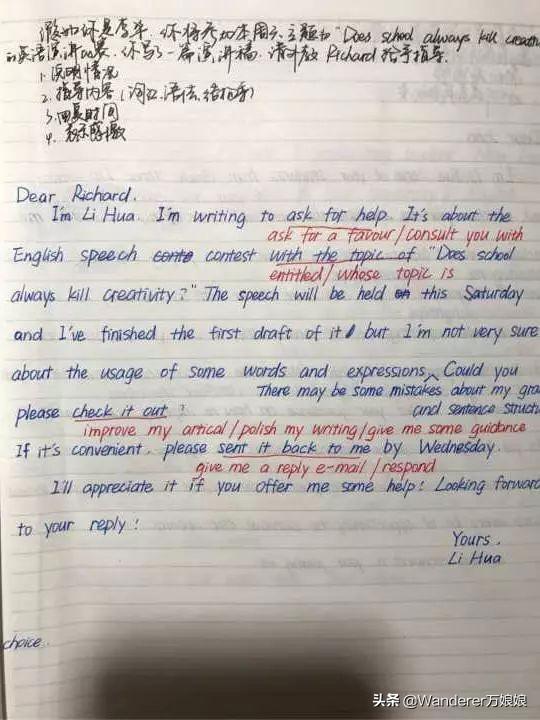 假如你是李华. 你将参加本周六主题为 "Does school always kill creativity
的英语演讲比赛. 你写了一篇演讲稿. 请外教 Richard 给予指导.
1. 说明情况
2. 指导内容 (词汇. 语法. 结构等)
3. 回复时间
4. 表示感激
Dear Richard.
I'm Li Hua. I'm writing to ask for help. It's about the
ask for a favour/consult you with
English speech contest with the topic of "Does school
entitled/ whose topic is
always kill creativity?" The speech will be held this Saturday
and I've finished the first draft of it but I'm not very sure
about the usage of some words and expressions. Could you
There may be some mistakes about my gra
please check it out ? and sentence structu
improve my artical/polish my writing/give me some guidance
If it's convenient. please sent it back to me by Wednesday.
give me a reply e-mail / respond
I'll appreciate it if you offer me some help! Looking forward
to your reply!
Yours.
Li Hua
choice.
头条 @Wanderer万娘娘